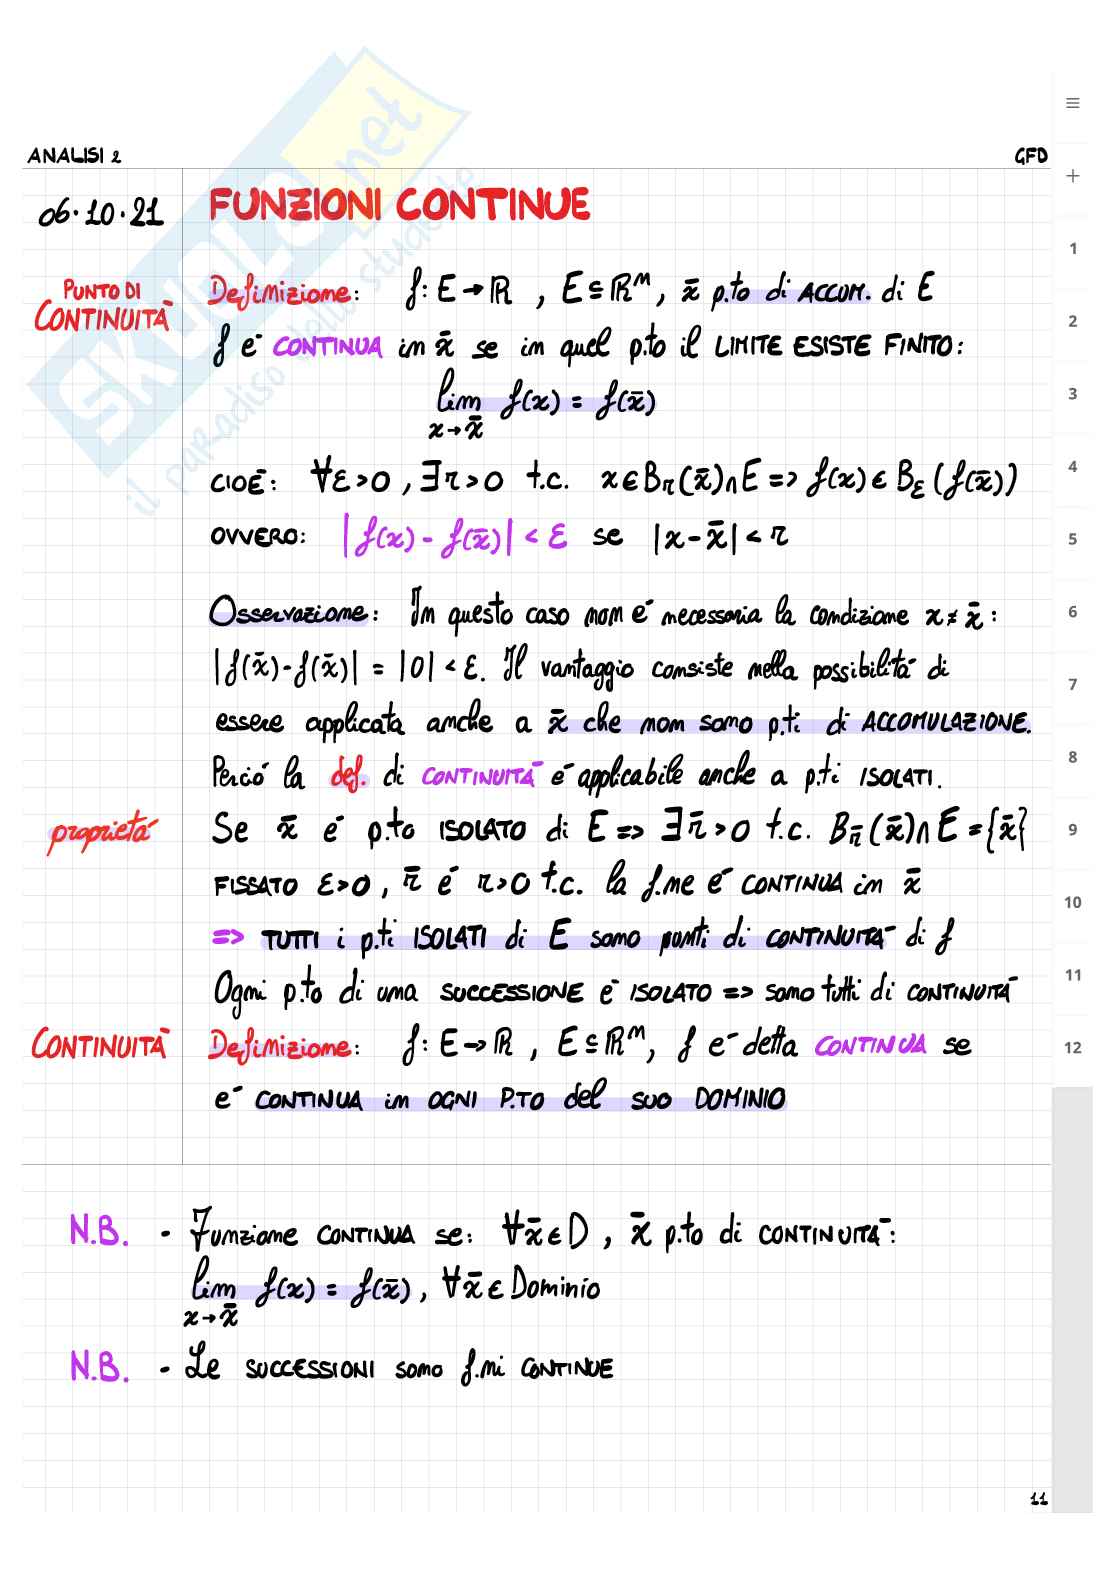 ANALISI 2
GFD
06·10·21
FUNZIONI CONTINUE
PUNTO DI
CONTINUITÀ
Definizione: f: E → ℝ , E ⊆ ℝⁿ, x̄ p.to di ACCUM. di E
f è CONTINUA in x̄ se in quel p.to il LIMITE ESISTE FINITO:
lim f(x) = f(x̄)
x→x̄
CIOÈ: ∀ε>0 , ∃r>0 t.c. x∈Br(x̄)∩E => f(x)∈Bε(f(x̄))
OVVERO: |f(x) - f(x̄)| < ε se |x-x̄| < r
Osservazione: In questo caso non è necessaria la condizione x≠x̄ :
|f(x̄)-f(x̄)| = |0| < ε. Il vantaggio consiste nella possibilità di
essere applicata anche a x̄ che non sono p.ti di ACCOMULAZIONE.
Perció la def. di CONTINUITÀ è applicabile anche a p.ti ISOLATI.
proprietà
Se x̄ è p.to ISOLATO di E => ∃r̄>0 t.c. Br̄(x̄)∩E = {x̄}
FISSATO ε>0, r̄ è r>0 t.c. la f.ne è CONTINUA in x̄
=> TUTTI i p.ti ISOLATI di E sono punti di CONTINUITÀ di f
Ogni p.to di una SUCCESSIONE è ISOLATO => sono tutti di CONTINUITÀ
CONTINUITÀ
Definizione: f: E → ℝ , E ⊆ ℝⁿ, f è detta CONTINUA se
è CONTINUA in OGNI P.TO del suo DOMINIO
N.B. - Funzione CONTINUA se: ∀x̄∈D , x̄ p.to di CONTINUITÀ:
lim f(x) = f(x̄), ∀x̄∈Dominio
x→x̄
N.B. - Le SUCCESSIONI sono f.ni CONTINUE
11
≡
+
1
2
3
4
5
6
7
8
9
10
11
12
SKUOLA.net
il paradiso dello studente